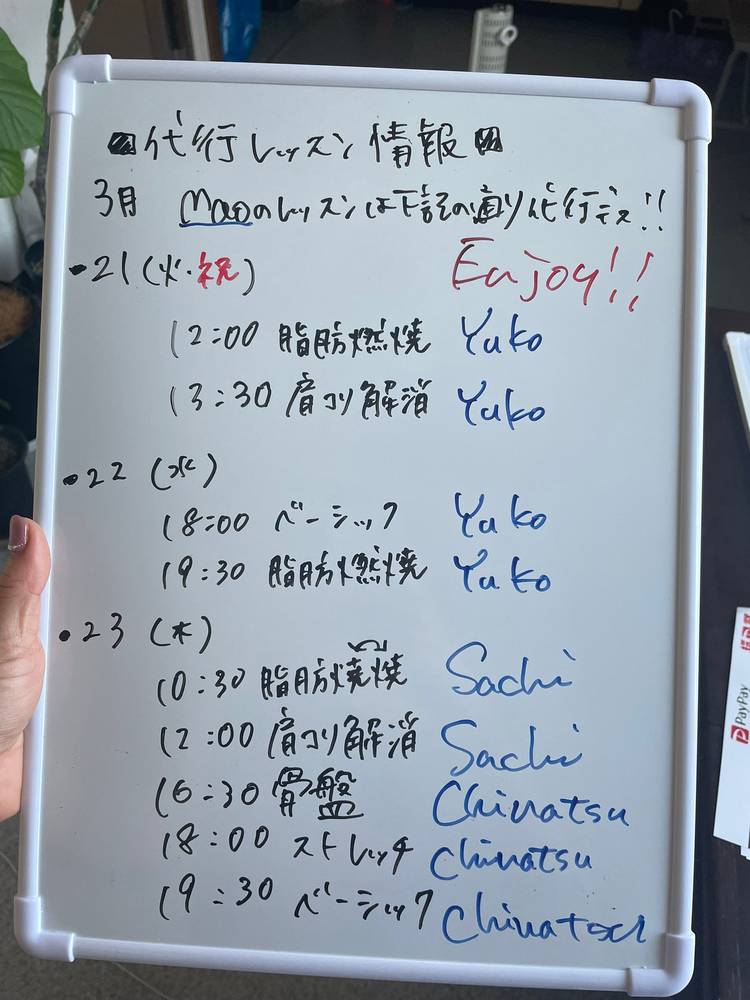 代行レッスン情報
3月 Maoのレッスンは下記の通り代行デス!!
・21(火・祝) Enjoy!!
12:00 脂肪燃焼 Yuko
13:30 肩コリ解消 Yuko
・22(水)
18:00 ベーシック Yuko
19:30 脂肪燃焼 Yuko
・23(木)
10:30 脂肪焼燃 Sachi
12:00 肩コリ解消 Sachi
16:30 骨盤 Chinatsu
18:00 ストレッチ Chinatsu
19:30 ベーシック Chinatsu
PayPay